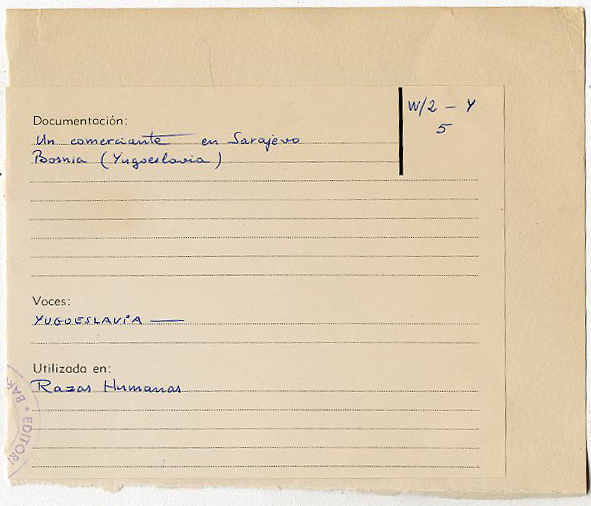 W/2 - Y
5
Documentación:
Un comerciante en Sarajevo
Bosnia (Yugoeslavia)
Voces:
YUGOESLAVIA —
Utilizada en:
Razas Humanas
BAR
* EDITORI